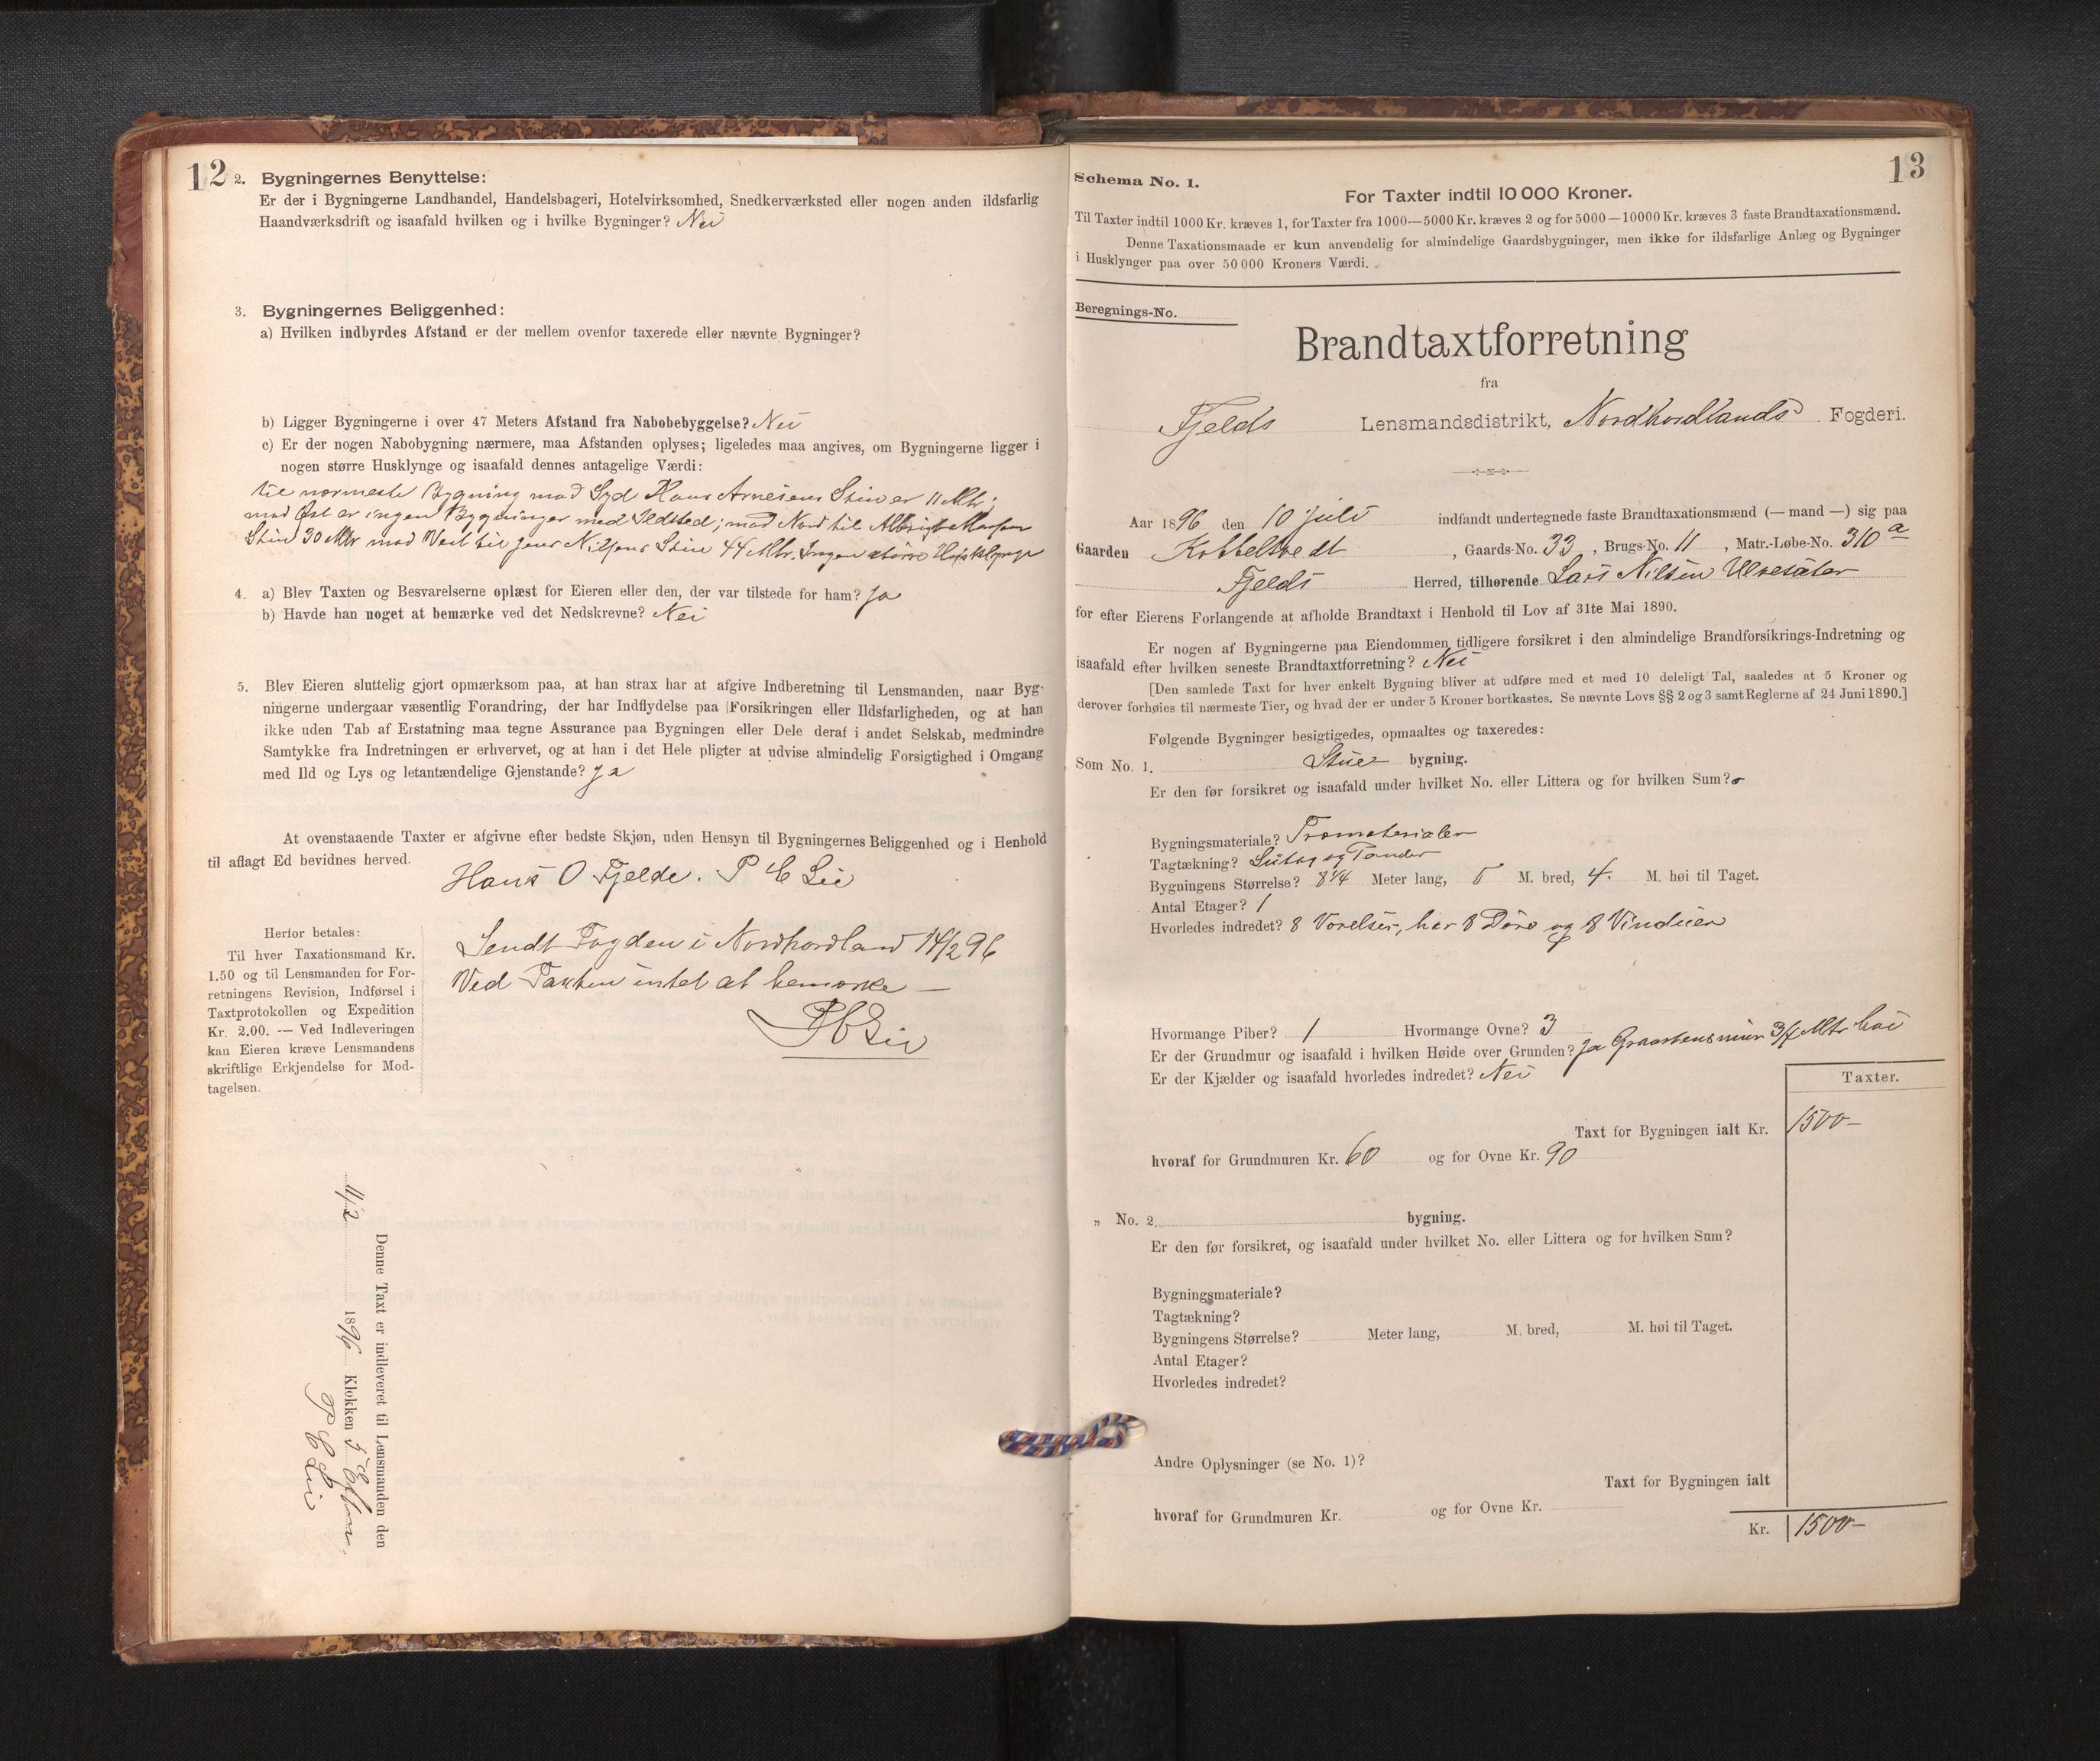 12
2. Bygningernes Benyttelse:
Er der i Bygningerne Landhandel, Handelsbageri, Hotelvirksomhed, Snedkerværksted eller nogen anden ildsfarlig
Haandværksdrift og isaafald hvilken og i hvilke Bygninger? Nei
3. Bygningernes Beliggenhed:
a) Hvilken indbyrdes Afstand er der mellem ovenfor taxerede eller nævnte Bygninger?
b) Ligger Bygningerne i over 47 Meters Afstand fra Nabobebyggelse? Nei
c) Er der nogen Nabobygning nærmere, maa Afstanden oplyses; ligeledes maa angives, om Bygningerne ligger i
nogen større Husklynge og isaafald dennes antagelige Værdi:
til nærmeste Bygning mod Syd Hans Arnesens Stue er 11 Mtr;
mod Øst er ingen Bygninger med Ildsted; mod Nord til
Stue 30 Mtr mod Vest til Jens Nilsens Stue 44 Mtr. Ingen større Husklynge
4. a) Blev Taxten og Besvarelserne oplæst for Eieren eller den, der var tilstede for ham? Ja
b) Havde han noget at bemærke ved det Nedskrevne? Nei
5. Blev Eieren sluttelig gjort opmærksom paa, at han strax har at afgive Indberetning til Lensmanden, naar Byg-
ningerne undergaar væsentlig Forandring, der har Indflydelse paa Forsikringen eller Ildsfarligheden, og at han
ikke uden Tab af Erstatning maa tegne Assurance paa Bygningen eller Dele deraf i andet Selskab, medmindre
Samtykke fra Indretningen er erhvervet, og at han i det Hele pligter at udvise almindelig Forsigtighed i Omgang
med Ild og Lys og letantændelige Gjenstande? Ja
At ovenstaaende Taxter er afgivne efter bedste Skjøn, uden Hensyn til Bygningernes Beliggenhed og i Henhold
til aflagt Ed bevidnes herved.
Hans O Fjelde. P C Lie
Herfor betales:
Til hver Taxationsmand Kr.
1.50 og til Lensmanden for For-
retningens Revision, Indførsel i
Taxtprotokollen og Expedition
Kr. 2.00. — Ved Indleveringen
kan Eieren kræve Lensmandens
skriftlige Erkjendelse for Mod-
tagelsen.
Sendt Fogden i Nordhordland 14/2 96
Ved Taxten intet at bemærke —
P C Lie
Denne Taxt er indleveret til Lensmanden den
11/2 1896 Klokken 5 Eftm.
P C Lie
13
Schema No. 1.
For Taxter indtil 10 000 Kroner.
Til Taxter indtil 1000 Kr. kræves 1, for Taxter fra 1000—5000 Kr. kræves 2 og for 5000—10000 Kr. kræves 3 faste Brandtaxationsmænd.
Denne Taxationsmaade er kun anvendelig for almindelige Gaardsbygninger, men ikke for ildsfarlige Anlæg og Bygninger
i Husklynger paa over 50 000 Kroners Værdi.
Beregnings-No.
Brandtaxtforretning
fra
Fjelds Lensmandsdistrikt, Nordhordlands Fogderi.
Aar 1896 den 10 Juli indfandt undertegnede faste Brandtaxationsmænd (— mand —) sig paa
Gaarden Kobbeltvedt, Gaards-No. 33, Brugs-No. 11, Matr.-Løbe-No. 310 a
Fjelds Herred, tilhørende Lars Nilsen Ulvesæter
for efter Eierens Forlangende at afholde Brandtaxt i Henhold til Lov af 31te Mai 1890.
Er nogen af Bygningerne paa Eiendommen tidligere forsikret i den almindelige Brandforsikrings-Indretning og
isaafald efter hvilken seneste Brandtaxtforretning? Nei
[Den samlede Taxt for hver enkelt Bygning bliver at udføre med et med 10 deleligt Tal, saaledes at 5 Kroner og
derover forhøies til nærmeste Tier, og hvad der er under 5 Kroner bortkastes. Se nævnte Lovs §§ 2 og 3 samt Reglerne af 24 Juni 1890.]
Følgende Bygninger besigtigedes, opmaaltes og taxeredes:
Som No. 1. Stue bygning.
Er den før forsikret og isaafald under hvilket No. eller Littera og for hvilken Sum?
Bygningsmateriale? Træmaterialer
Tagtækning? Sutag og Pander
Bygningens Størrelse? 8 1/4 Meter lang, 5 M. bred, 4. M. høi til Taget.
Antal Etager? 1
Hvorledes indredet? 8 Værelser, har 8 Døre og 8 Vinduer
Hvormange Piber? 1 Hvormange Ovne? 3
Er der Grundmur og isaafald i hvilken Høide over Grunden? Ja Graastensmur 3/4 Mtr høi
Er der Kjælder og isaafald hvorledes indredet? Nei
Taxter.
Taxt for Bygningen ialt Kr. 1500—
hvoraf for Grundmuren Kr. 60 og for Ovne Kr. 90
„ No. 2 bygning.
Er den før forsikret, og isaafald under hvilket No. eller Littera og for hvilken Sum?
Bygningsmateriale?
Tagtækning?
Bygningens Størrelse? Meter lang, M. bred, M. høi til Taget.
Antal Etager?
Hvorledes indredet?
Andre Oplysninger (se No. 1)?
Taxt for Bygningen ialt
hvoraf for Grundmuren Kr. og for Ovne Kr.
Kr. 1500—